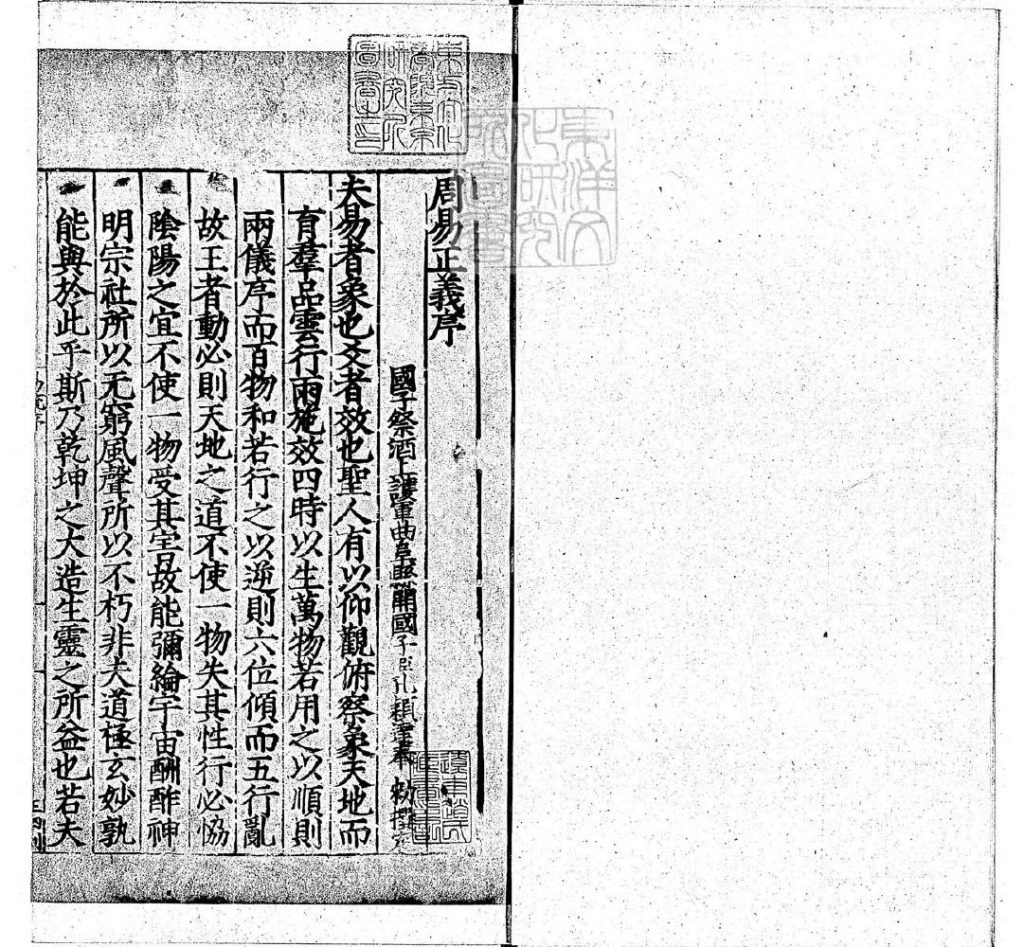 周易正義序
國子祭酒上護軍曲阜縣開國子臣孔穎達奉 勑撰定
夫易者象也爻者效也聖人有以仰觀俯察象天地而
育羣品雲行雨施效四時以生萬物若用之以順則
兩儀序而百物和若行之以逆則六位傾而五行亂
故王者動必則天地之道不使一物失其性行必恊
陰陽之宜不使一物受其害故能彌綸宇宙酬酢神
明宗社所以无窮風聲所以不朽非夫道極玄妙孰
能與於此乎斯乃乾坤之大造生靈之所益也若夫